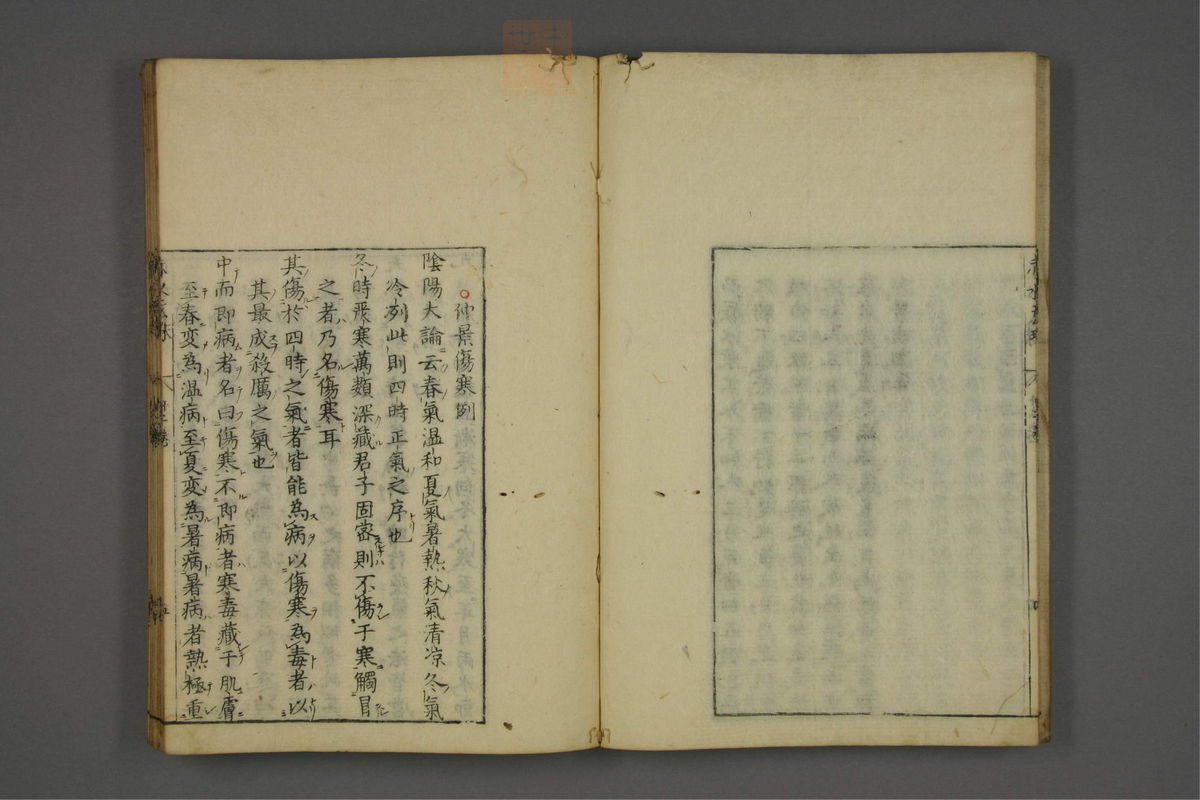 仲景傷寒例
陰陽大論云春氣温和夏氣暑熱秋氣清凉冬氣
冷列此則四時正氣之序也
冬時嚴寒萬類深藏君子固密則不傷于寒觸冒
之者乃名傷寒耳
其傷於四時之氣者皆能為病以傷寒為毒者以
其最成殺厲之氣也
中而即病者名曰傷寒不即病者寒毒藏于肌膚
至春変為温病至夏変為暑病暑病者熱極重